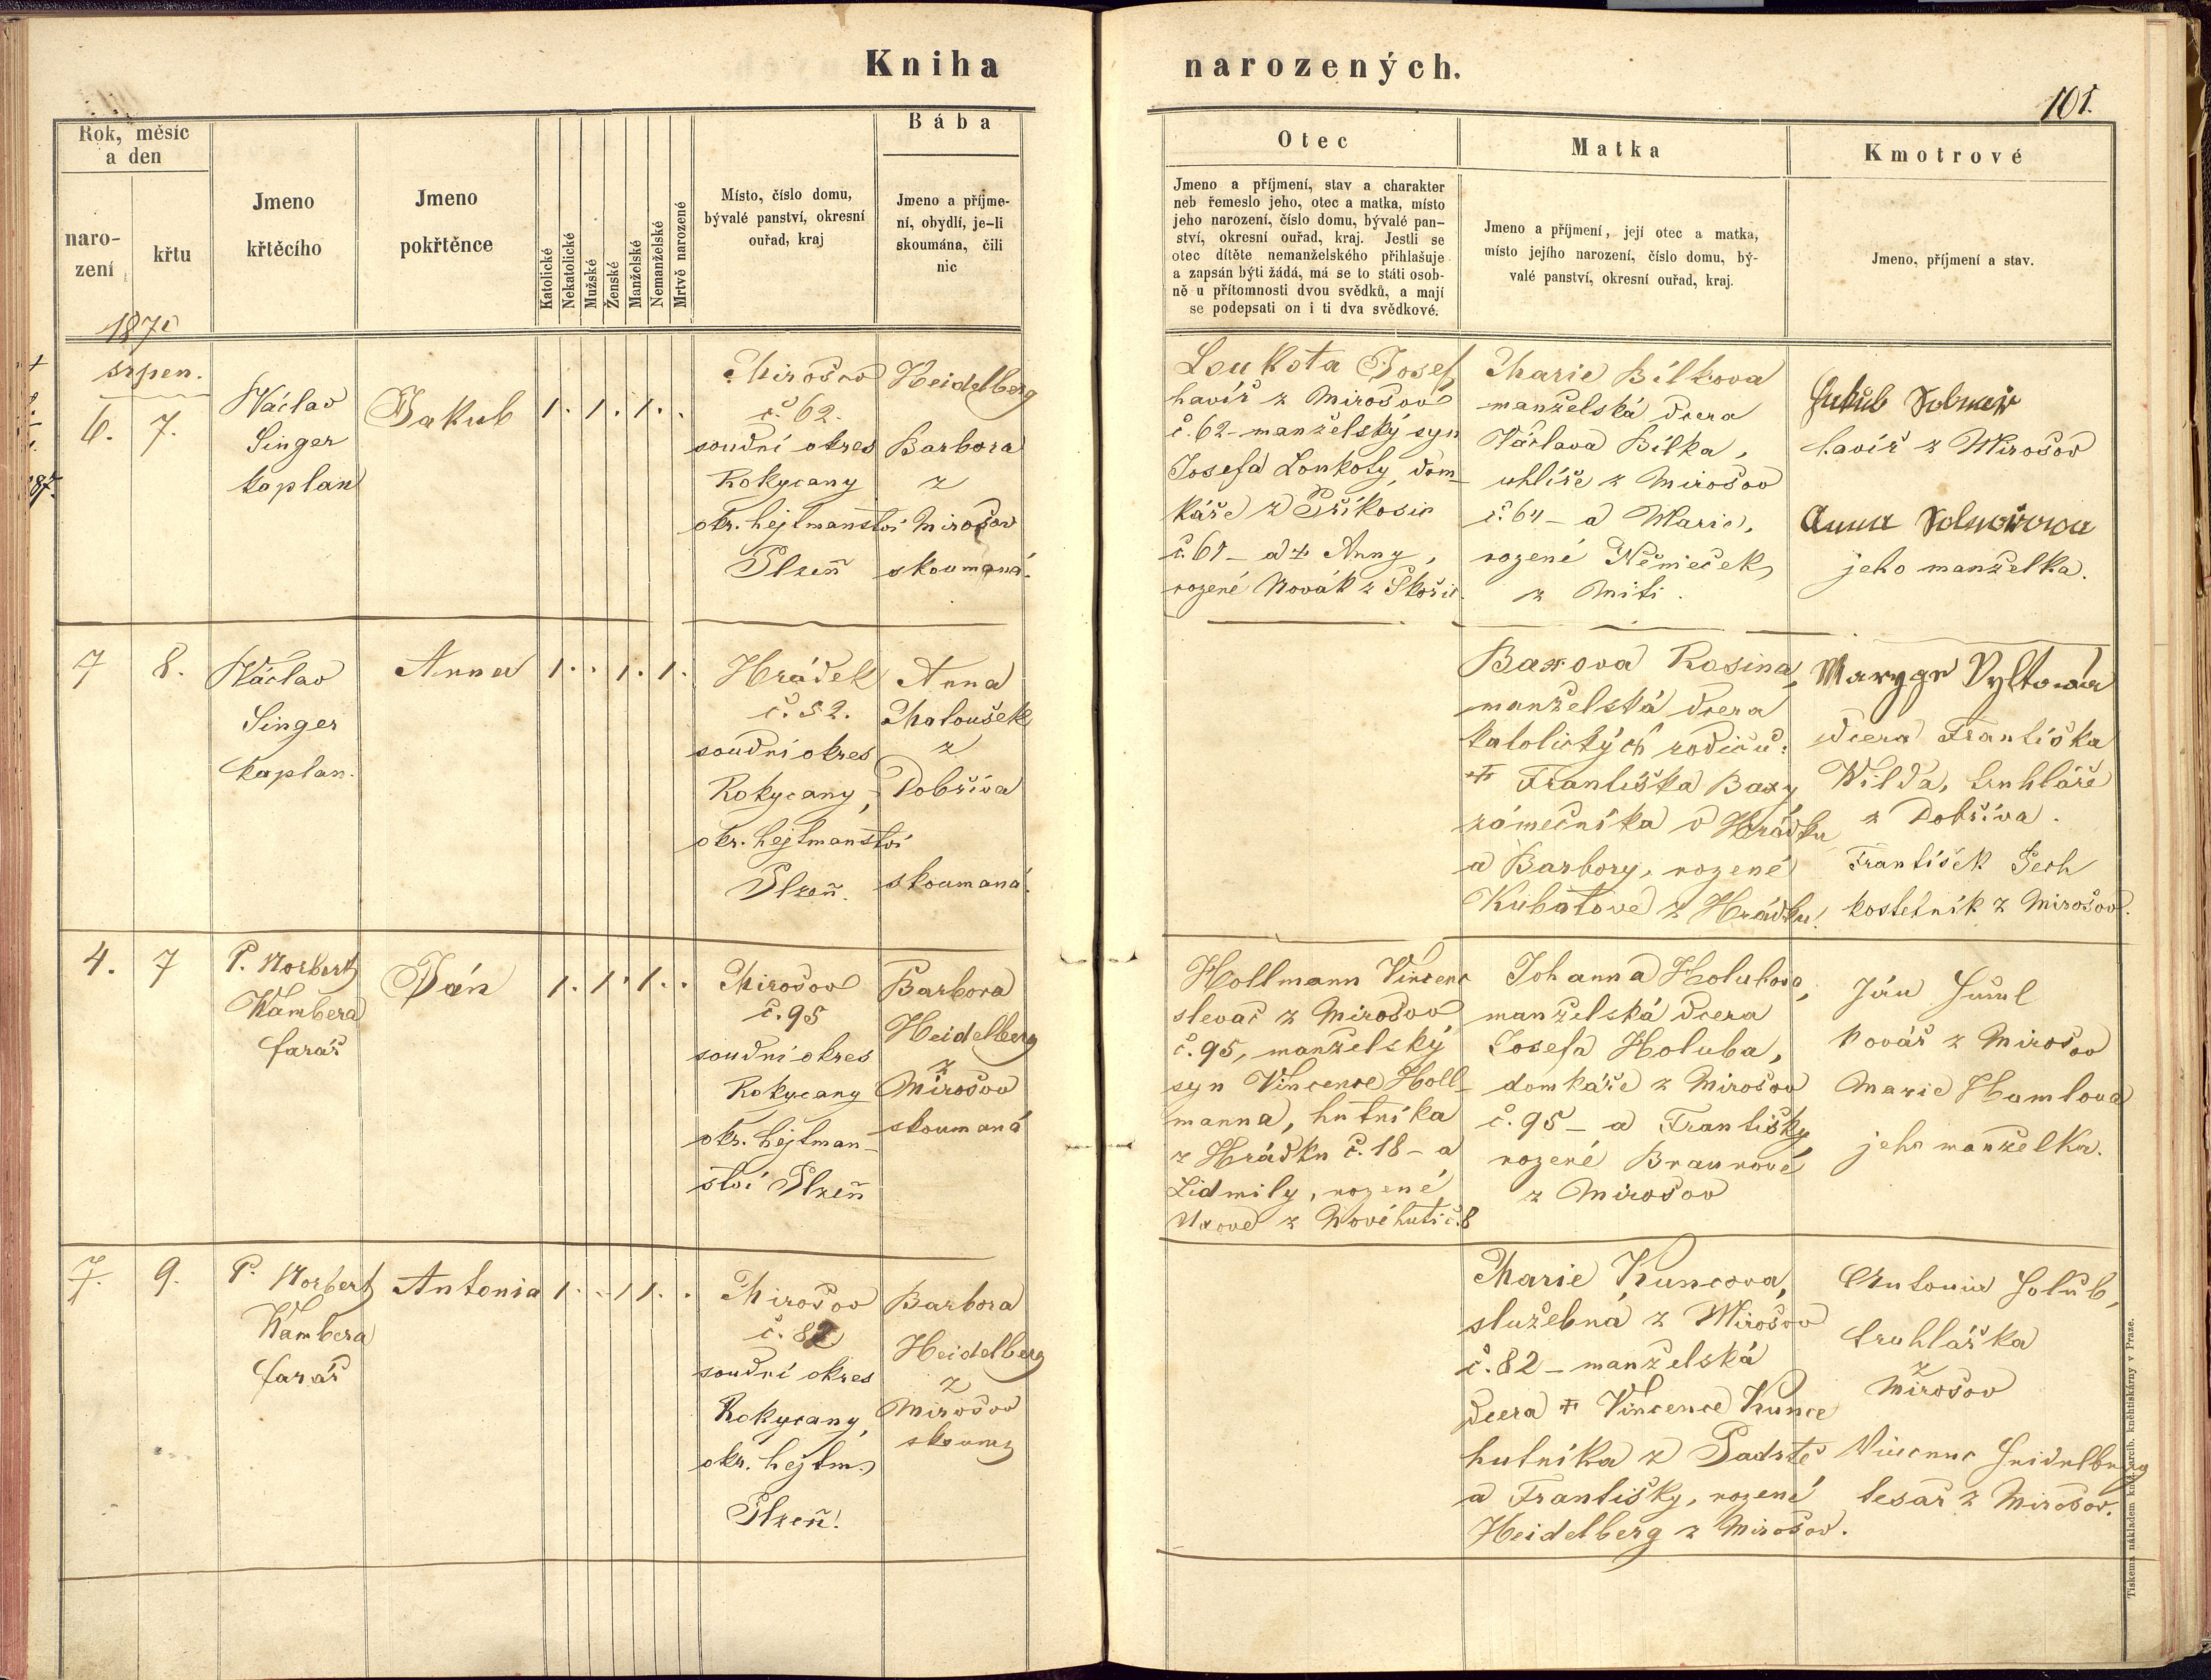 Kniha narozených.
101.
Rok, měsíc
a den
naro-
zení
křtu
Jmeno
křtěcího
Jmeno
pokřtěnce
Katolické
Nekatolické
Mužské
Ženské
Manželské
Nemanželské
Mrtvě narozené
Místo, číslo domu,
bývalé panství, okresní
ouřad, kraj
Bába
Jmeno a příjme-
ní, obydlí, je-li
skoumána, čili
nic
Otec
Jmeno a příjmení, stav a charakter
neb řemeslo jeho, otec a matka, místo
jeho narození, číslo domu, bývalé pan-
ství, okresní ouřad, kraj. Jestli se
otec dítěte nemanželského přihlašuje
a zapsán býti žádá, má se to státi osob-
ně u přítomnosti dvou svědků, a mají
se podepsati on i ti dva svědkové.
Matka
Jmeno a příjmení, její otec a matka,
místo jejího narození, číslo domu, bý-
valé panství, okresní ouřad, kraj.
Kmotrové
Jmeno, příjmení a stav.
srpen.
6. 7.
Václav
Singer
kaplan
Jakub
1. 1. 1.
Mirošov
č. 62.
soudní okres
Rokycany
okr. hejtmanství
Plzeň
Heidelberg
Barbora
z
Mirošov
skoumaná.
Loukota Josef
havíř z Mirošov
č. 62 - manželský syn
Josefa Loukoty, dom-
káře z Příkosic
č. 61 - a † Anny,
rozené Novák z Skořic.
Marie Bílkova
manželská dcera
Václava Bílka,
uhlíře z Mirošov
č. 64 - a Marie,
rozené Němeček
z Míti.
Jakub
havíř z Mirošov
Anna
jeho manželka.
7 8.
Václav
Singer
kaplan.
Anna
1. 1. 1.
Hrádek
č. 52.
soudní okres
Rokycany,
okr. hejtmanství
Plzeň.
Anna
Matoušek
z
Dobříva
skoumaná.
Baxova Rosina,
manželská dcera
katolických rodičů:
† Františka Baxy
zámečníka v Hrádku
a Barbory, rozené
Kubatové z Hrádku.
dcera Františka
Wilda, truhláře
z Dobříva.
František Pech
kostelník z Mirošov.
4. 7
P. Norbert
Wambera
farář
Ján
1. 1. 1.
Mirošov
č. 95
soudní okres
Rokycany
okr. hejtman-
ství Plzeň
Barbora
Heidelberg
z
Mirošov
skoumaná
Hollmann Vincenc
slevač z Mirošov
č. 95, manželský
syn Vincence Holl-
manna, hutníka
z Hrádku č. 18 - a
Lidmily, rozené
z Nové huti č. 8
Johanna Holubova,
manželská dcera
Josefa Holuba,
domkáře z Mirošov
č. 95 - a Františky
rozené Braunové
z Mirošov
Ján
kovář z Mirošov
Marie Hamlova
jeho manželka.
7. 9.
P. Norbert
Wambera
farář
Antonia
1. 1 1.
Mirošov
č. 82
soudní okres
Rokycany,
okr. hejtm.
Plzeň.
Barbora
Heidelberg
z
Mirošov
skoum.
Marie Kuncova,
služebná z Mirošov
č. 82 - manželská
dcera † Vincence Kunce
hutníka z Padrtě
a Františky, rozené
Heidelberg z Mirošov.
Antonie Holub,
truhlářka
z
Mirošov
Vincenc Heidelberg
tesař z Mirošov.